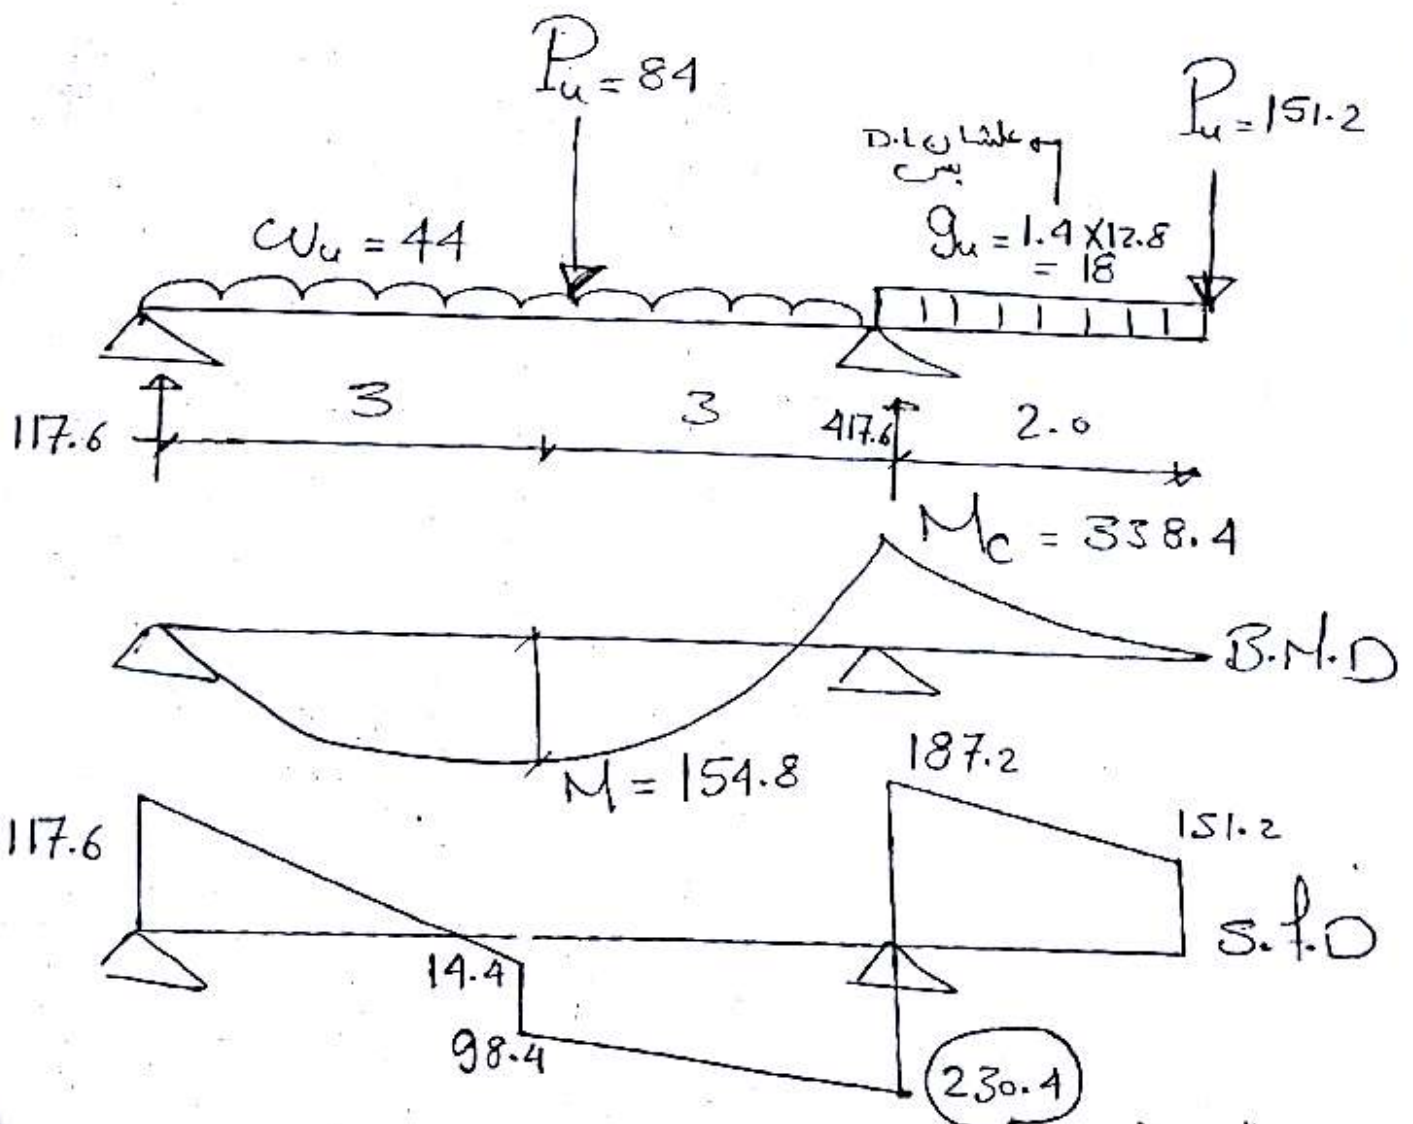 Pu = 84
Pu = 151.2
D.L علشان
بس
ωu = 44
gu = 1.4 × 12.8
= 18
117.6
3
3
417.6
2.0
Mc = 338.4
B.M.D
M = 154.8
187.2
117.6
151.2
S.f.D
14.4
98.4
230.4